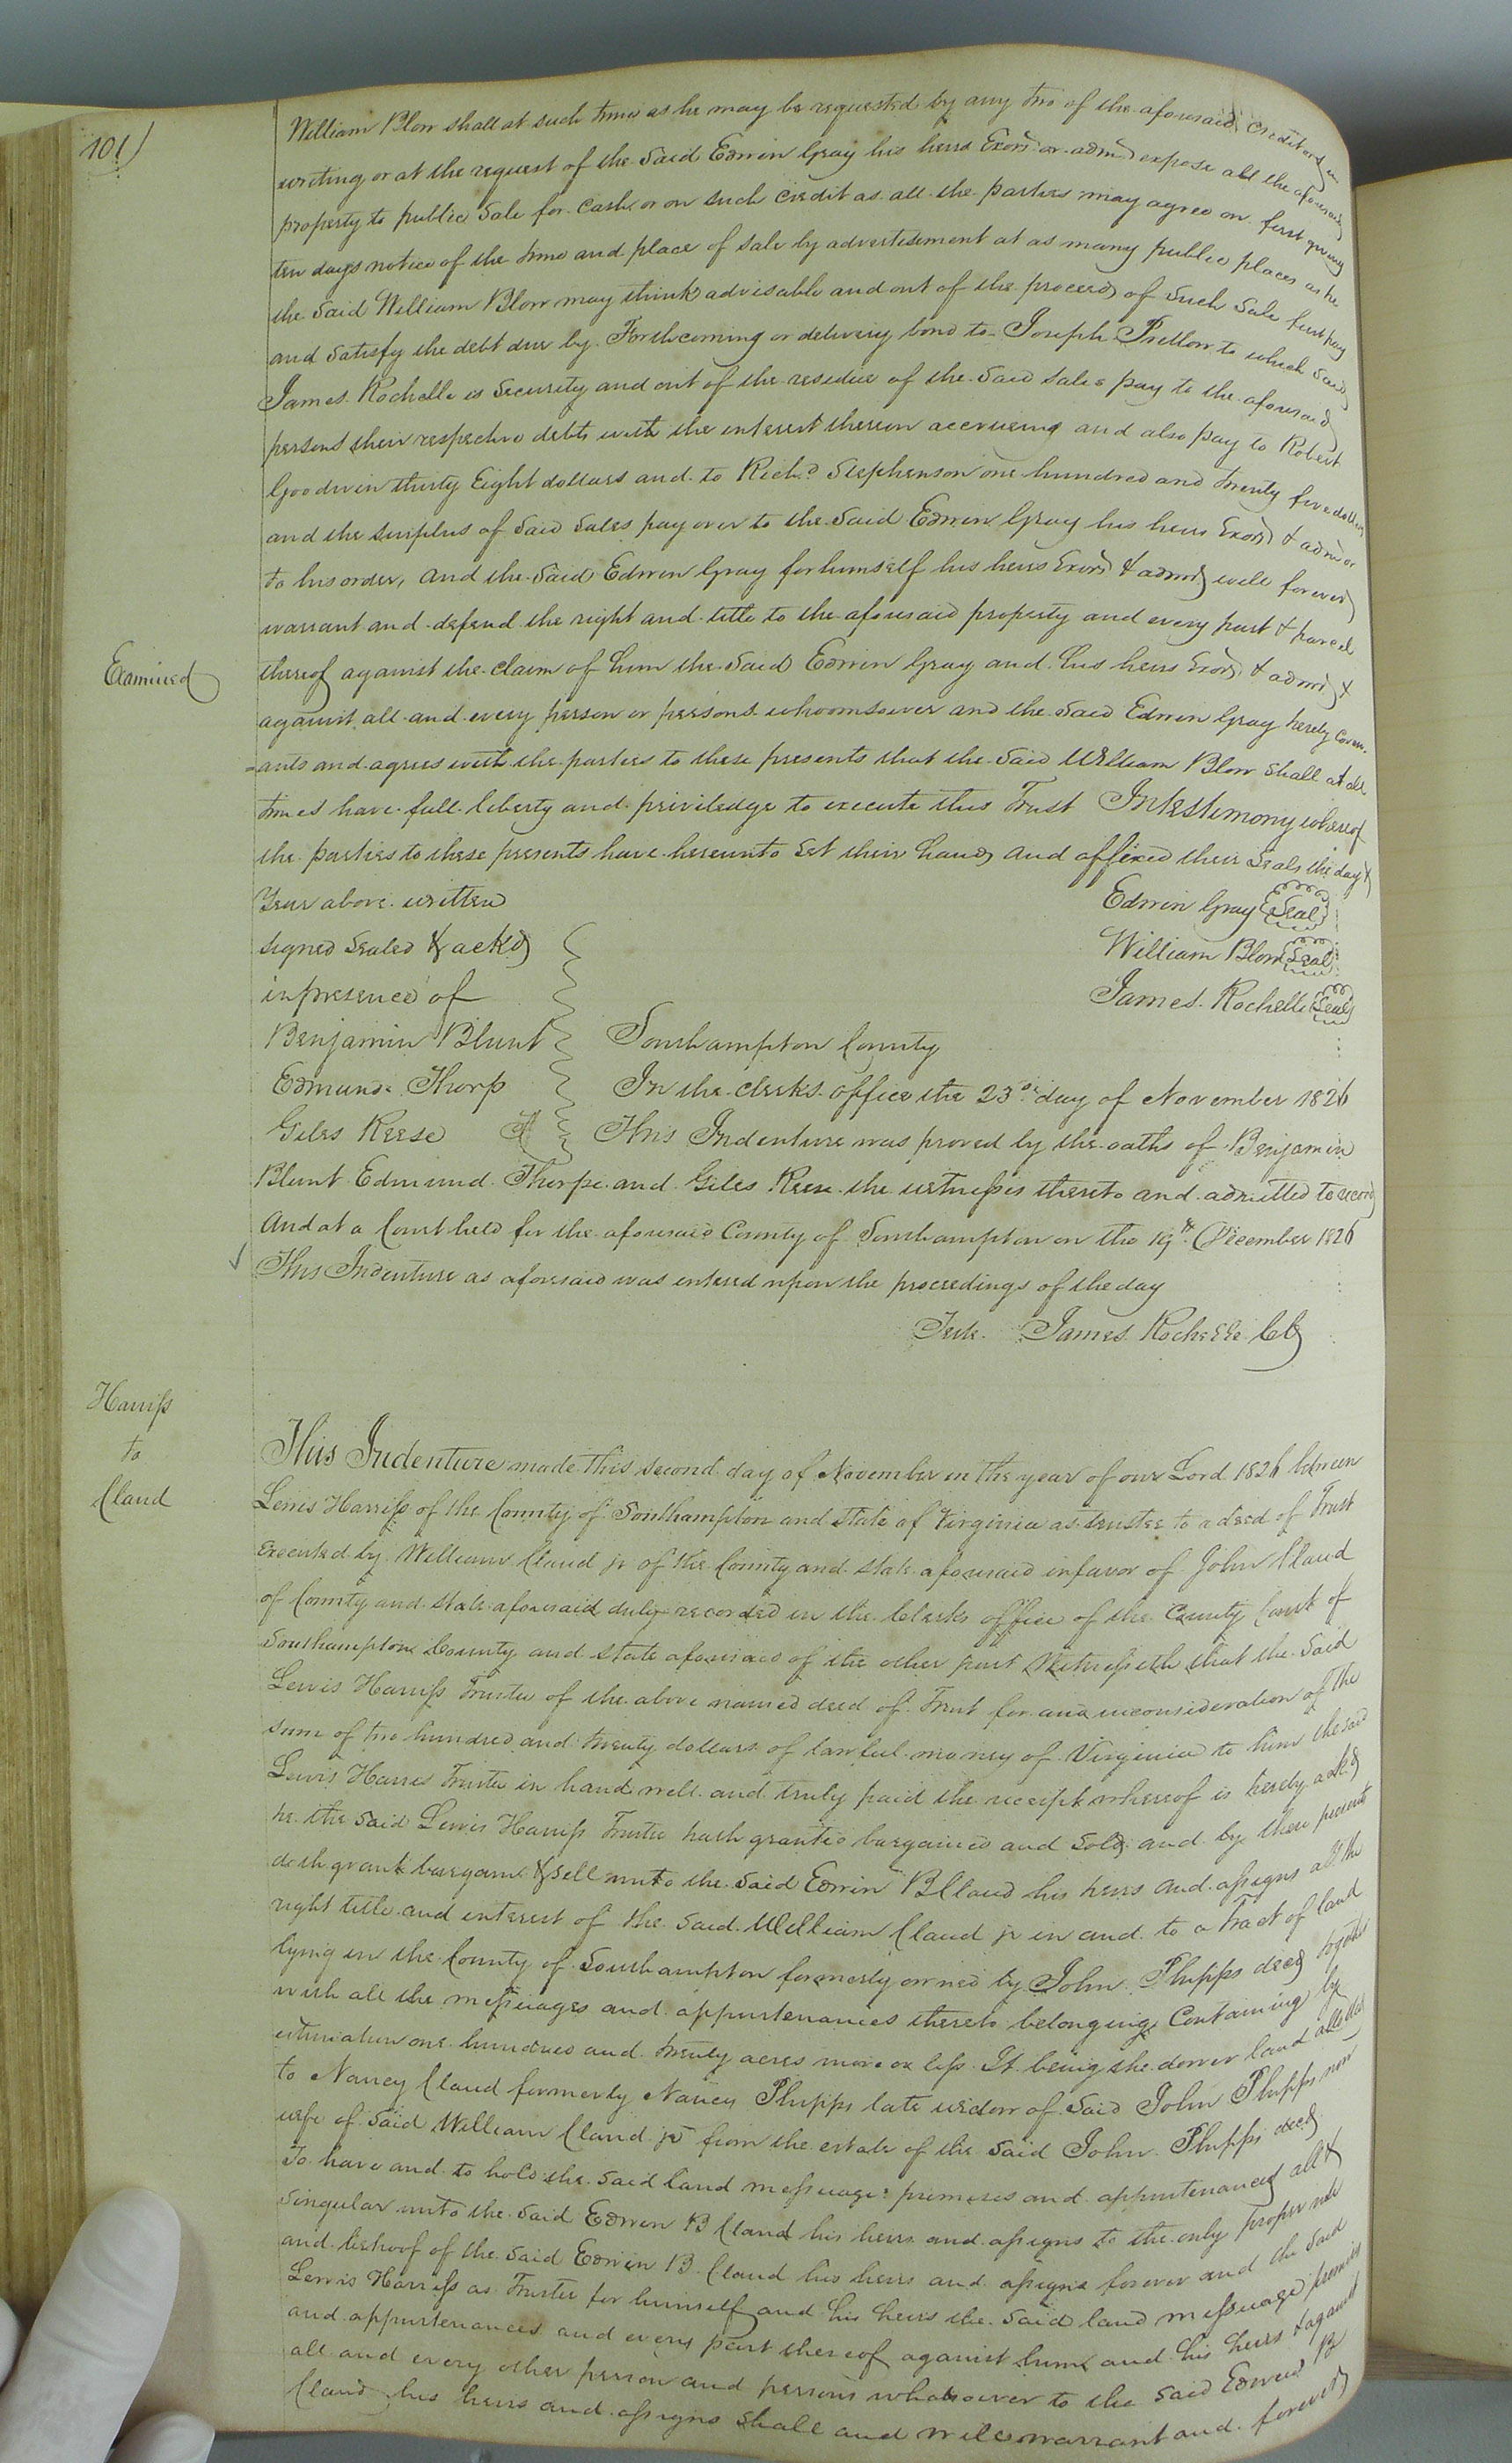 101)
William Blow shall at such time as he may be requested by any two of the aforesaid creditors in
writing or at the request of the Said Edwin Gray his heirs Exors or admrs expose all the aforesaid
property to public Sale for Cash or on such credit as all the parties may agree on first giving
ten days notice of the time and place of sale by advertisement at as many public places as he
the Said William Blow may think advisable and out of the proceeds of Such Sale first pay
and satisfy the debt due by Forthcoming or delivery bond to Joseph Pretlow to which Said
James Rochelle is Security and out of the residue of the Said Sales pay to the aforesaid
persons their respective debts with the interest thereon accrueing and also pay to Robert
Goodwin thirty Eight dollars and to Richd Stephenson one hundred and twenty five dollars
and the surplus of Said Sales pay over to the Said Edwin Gray his heirs Exors & admrs or
to his order, and the Said Edwin Gray for himself his heirs Exors & admrs will forever
warrant and defend the right and title to the aforesaid property and every part & parcel
Examined
thereof against the claim of him the Said Edwin Gray and his heirs Exors & admrs &
against all and every person or persons whoomsoever and the Said Edwin Gray hereby coven
=ants and agrees with the parties to these presents that the Said William Blow shall at all
times have full liberty and priviledge to execute this Trust In testimony whereof
the parties to these presents have hereunto Set their hands and affixed their Seals the day &
Year above written
Edwin Gray Seal
signed Sealed & ackd
William Blow Seal
in presence of
James Rochelle Seal
Benjamin Blunt
Southampton County
Edmund Thorp
In the clerks office the 23d day of November 1826
Giles Reese
This Indenture was proved by the oaths of Benjamin
Blunt Edmund Thorpe and Giles Reese the witnesses thereto and admitted to record
And at a Court held for the aforesaid County of Southampton on the 19th December 1826
This Indenture as aforesaid was entered upon the proceedings of the day
Teste James Rochelle Clk
Harriss
to
Claud
This Indenture made this second day of November in the year of our Lord 1826 between
Lewis Harriss of the County of Southampton and State of Virginia as trustee to a deed of Trust
Executed by William Claud jr of the County and State aforesaid in favor of John Claud
of County and State aforesaid duly recorded in the Clerks office of the County Court of
Southampton County and State aforesaid of the other part Witnesseth that the Said
Lewis Harriss Trustee of the above named deed of Trust for and in consideration of the
sum of two hundred and twenty dollars of lawful money of Virginia to him the said
Lewis Harress Trustee in hand well and truly paid the receipt whereof is hereby ackd
he the Said Lewis Harriss Trustee hath granted bargained and Sold and by these presents
doth grant bargain & Sell unto the Said Edwin B Claud his heirs and assigns all the
right title and interest of the Said William Claud jr in and to a Tract of land
lying in the County of Southampton formerly owned by John Phipps decd together
with all the messuages and appurtenances thereto belonging Containing by
estimation one hundred and twenty acres more or less It being the dower land allotted
to Nancy Claud formerly Nancy Phipps late widow of Said John Phipps now
wife of Said William Claud jr from the estate of the Said John Phipps decd
To have and to hold the Said land messuage premises and appurtenances all &
Singular unto the Said Edwin B Claud his heirs and assigns to the only proper use
and behoof of the Said Edwin B Claud his heirs and assigns forever and the Said
Lewis Harriss as Trustee for himself and his heirs the Said land messuage premises
and appurtenances and every part thereof against him and his heirs & against
all and every other person and persons whatsoever to the Said Edwin B
Claud his heirs and assigns shall and will warrant and forever